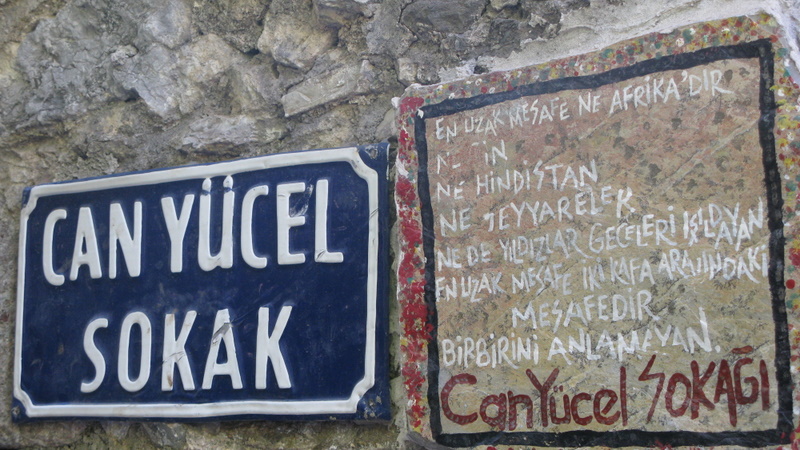 CAN YÜCEL
SOKAK
EN UZAK MESAFE NE AFRİKA'DIR
NE ÇİN
NE HİNDİSTAN
NE SEYYARELER
NE DE YILDIZLAR GECELERİ IŞILDAYAN
EN UZAK MESAFE İKİ KAFA ARASINDAKİ
MESAFEDİR
BİRBİRİNİ ANLAMAYAN.
Can Yücel SOKAĞI